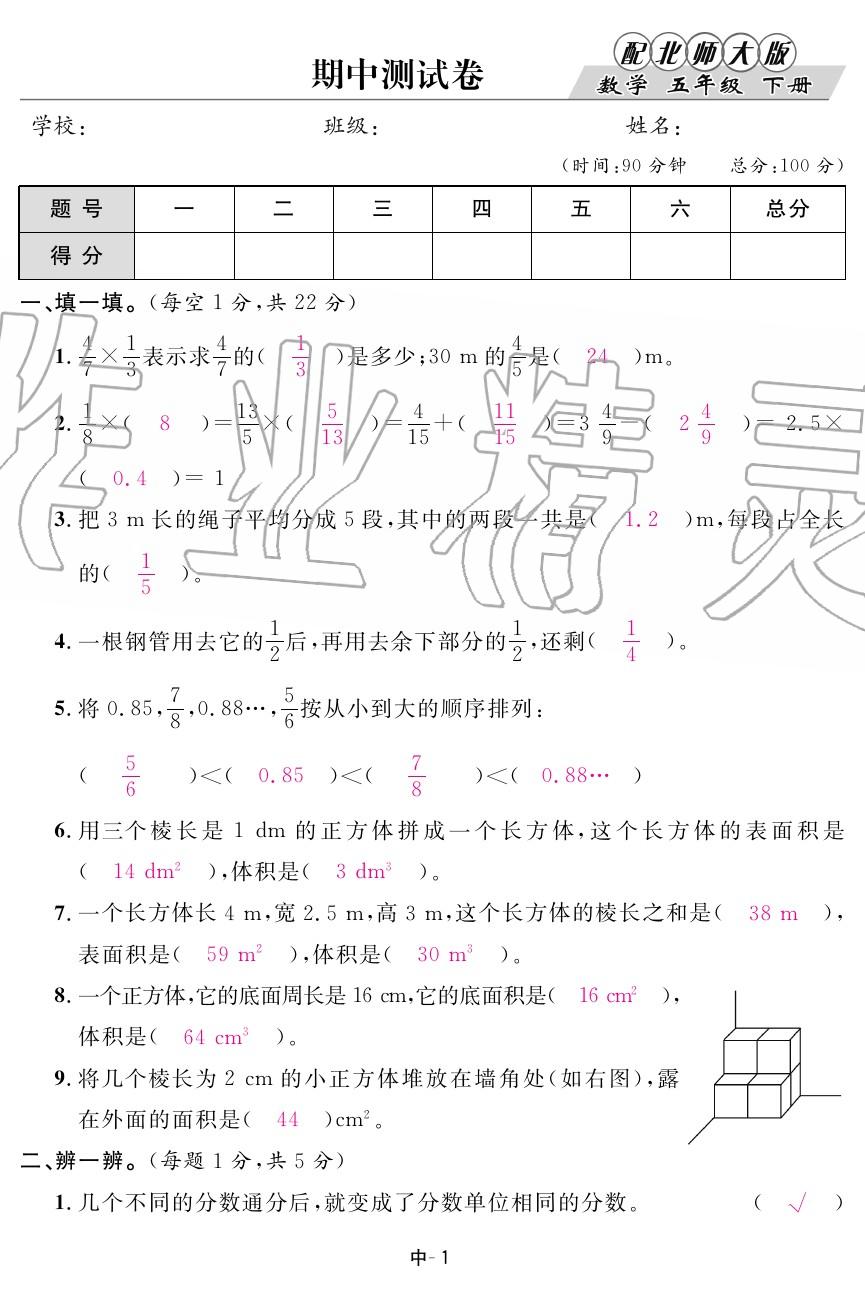 配北师大版
期中测试卷
数学 五年级 下册
学校: 班级: 姓名:
(时间:90分钟 总分:100分)
题号 一 二 三 四 五 六 总分
得分
一、填一填。(每空1分,共22分)
1. 4/7×1/3表示求4/7的( 1/3 )是多少;30 m的4/5是( 24 )m。
2. 1/8×( 8 )=13/5×( 5/13 )=4/15+( 11/15 )=3 4/9-( 2 4/9 )=2.5×
( 0.4 )=1
3. 把3 m长的绳子平均分成5段,其中的两段一共是( 1.2 )m,每段占全长
的( 1/5 )。
4. 一根钢管用去它的1/2后,再用去余下部分的1/2,还剩( 1/4 )。
5. 将0.85,7/8,0.88…,5/6按从小到大的顺序排列:
( 5/6 )<( 0.85 )<( 7/8 )<( 0.88… )
6. 用三个棱长是1 dm的正方体拼成一个长方体,这个长方体的表面积是
( 14 dm² ),体积是( 3 dm³ )。
7. 一个长方体长4 m,宽2.5 m,高3 m,这个长方体的棱长之和是( 38 m ),
表面积是( 59 m² ),体积是( 30 m³ )。
8. 一个正方体,它的底面周长是16 cm,它的底面积是( 16 cm² ),
体积是( 64 cm³ )。
9. 将几个棱长为2 cm的小正方体堆放在墙角处(如右图),露
在外面的面积是( 44 )cm²。
二、辨一辨。(每题1分,共5分)
1. 几个不同的分数通分后,就变成了分数单位相同的分数。 ( √ )
中-1
作业精灵